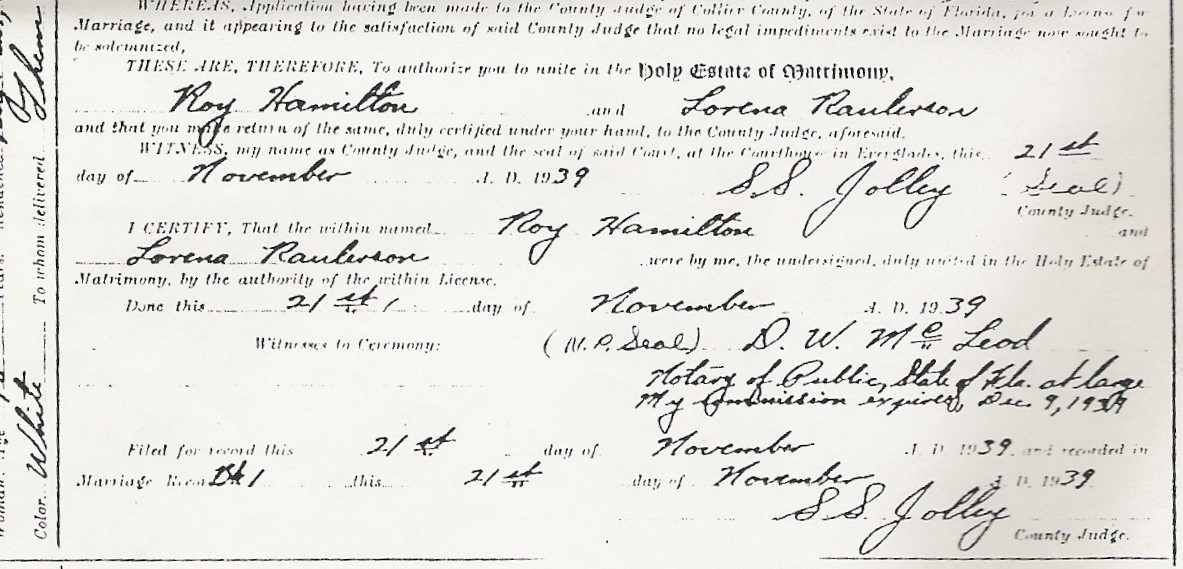 WHEREAS, Application having been made to the County Judge of Collier County, of the State of Florida, for a License for
Marriage, and it appearing to the satisfaction of said County Judge that no legal impediments exist to the Marriage now sought to
be solemnized,
THESE ARE, THEREFORE, To authorize you to unite in the Holy Estate of Matrimony,
Roy Hamilton and Lorena Raulerson
and that you make return of the same, duly certified under your hand, to the County Judge, aforesaid.
WITNESS, my name as County Judge, and the seal of said Court, at the Courthouse in Everglades, this 21st
day of November A. D. 1939 S.S. Jolley (Seal)
County Judge.
I CERTIFY, That the within named Roy Hamilton and
Lorena Raulerson were by me, the undersigned, duly united in the Holy Estate of
Matrimony, by the authority of the within License.
Done this 21st day of November A. D. 1939
Witnesses to Ceremony: (N.P. Seal) D. W. McLeod
Notary of Public, State of Fla. at large
My commission expires Dec. 9, 1939
Filed for record this 21st day of November A. D. 1939, and recorded in
Marriage Record Bk 1 this 21st day of November A. D. 1939
S.S. Jolley
County Judge.
Color White To whom delivered Them